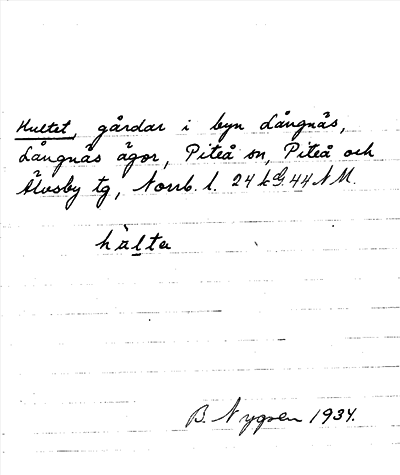 Hultet, gårdar i byn Långnäs,
Långnäs ägor, Piteå sn, Piteå och
Älvsby tg, Norrb. l. 24 k G. 44 N M.
hàlta
B. Nygren 1934.